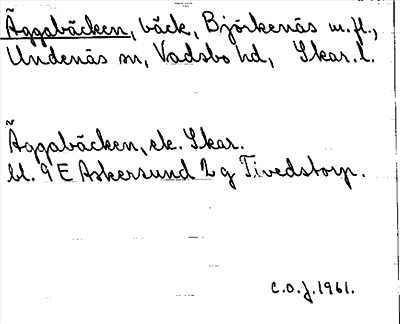 Äggabäcken, bäck, Björkenäs m.fl.,
Undenäs sn, Vadsbo hd, Skar. l.
Äggabäcken, ek. Skar.
bl. 9 E Askersund 2 g Tivedstorp.
C.O.J. 1961.